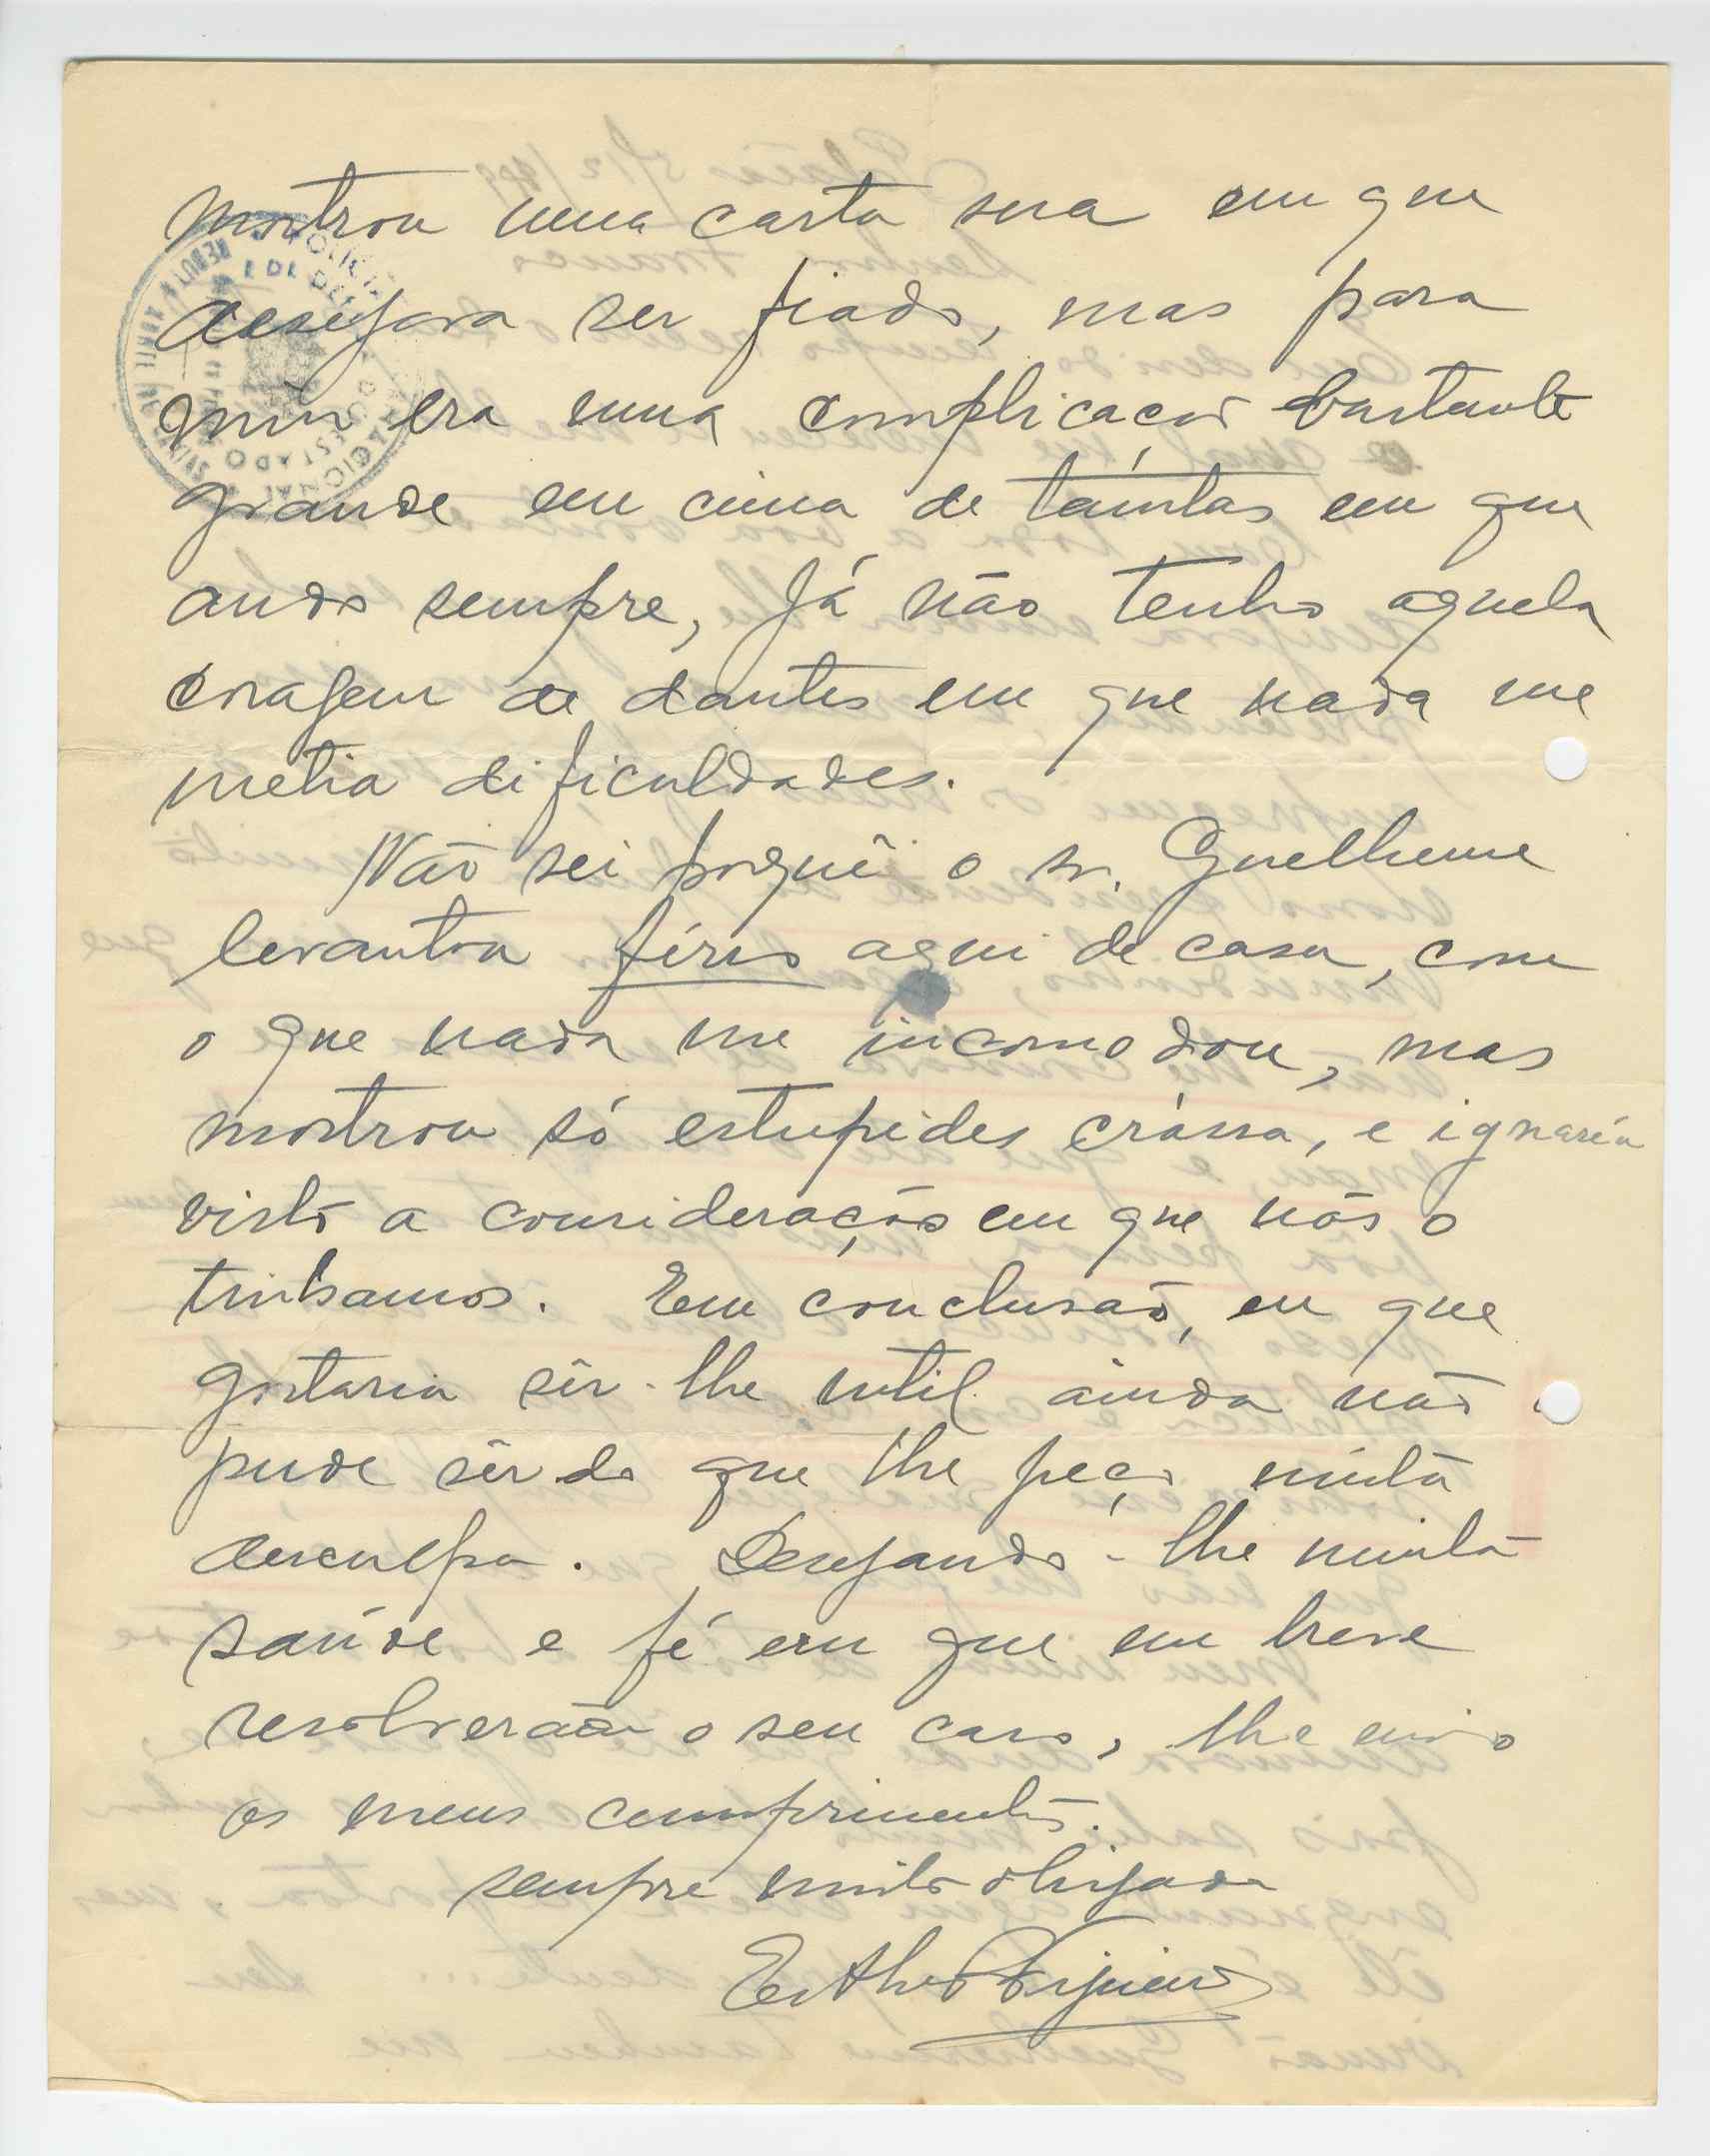 mostrou uma carta sua em que
desejava ser fiado, mas para
mim era uma complicação bastante
grande em cima de tántas em que
ando sempre, Já não tenho aquela
coragem de dantes em que nada me
metia dificuldades.
Não sei porquê o sr. Guelherme
levantou férus aqui de casa, com
o que nada me incomodou, mas
mostrou só estupides crássa, e ignaréa
visto a consideração em que nós o
tinhamos. Em conclusão, eu que
gostaria sêr-lhe util ainda não
pude sêr do que lhe peço muita
desculpa. Desejando-lhe muita
saúde e fé em que em breve
resolverão o seu caso, lhe envio
os meus cumprimentos.
sempre muito obrigada
Esther
POLICIA